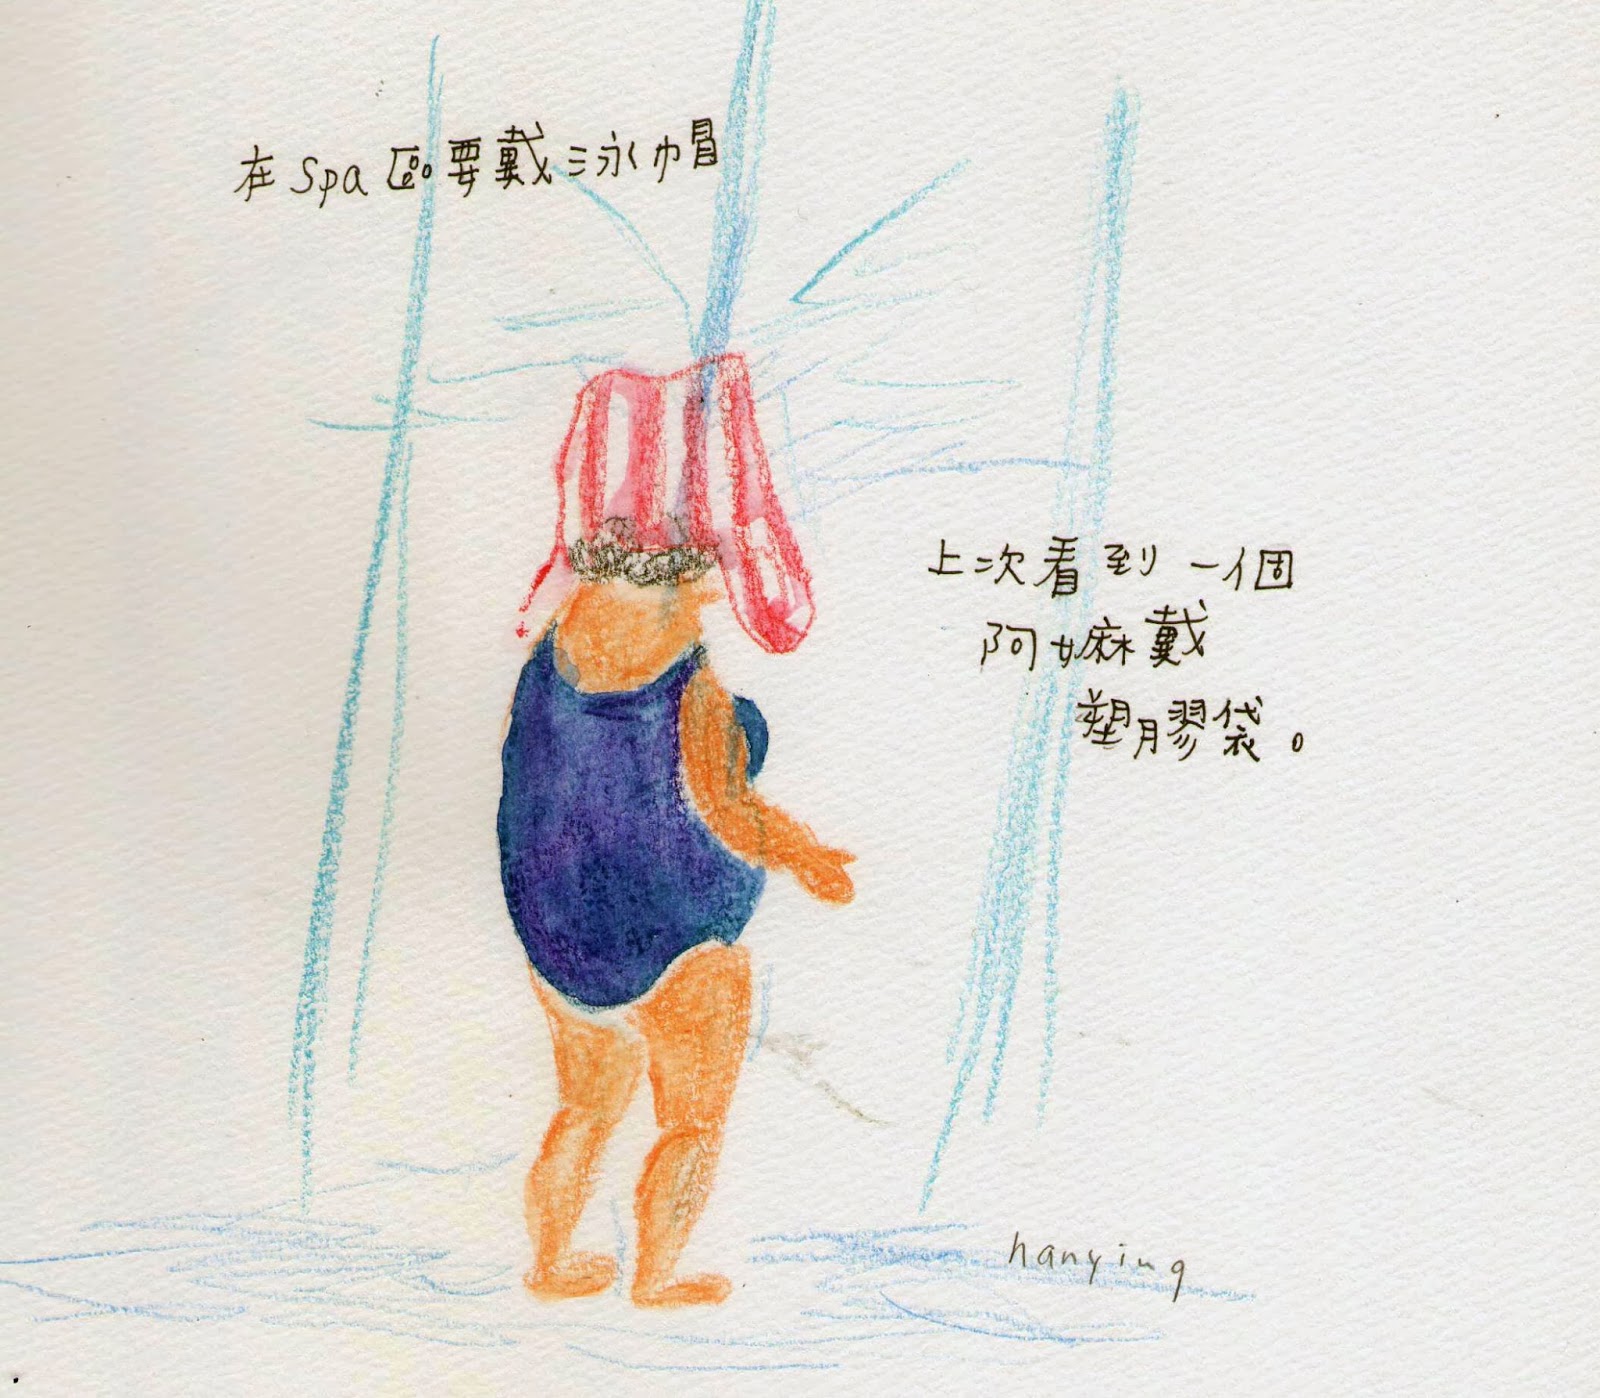 在Spa區要戴泳帽
上次看到一個
阿嬤戴
塑膠袋。
hanying